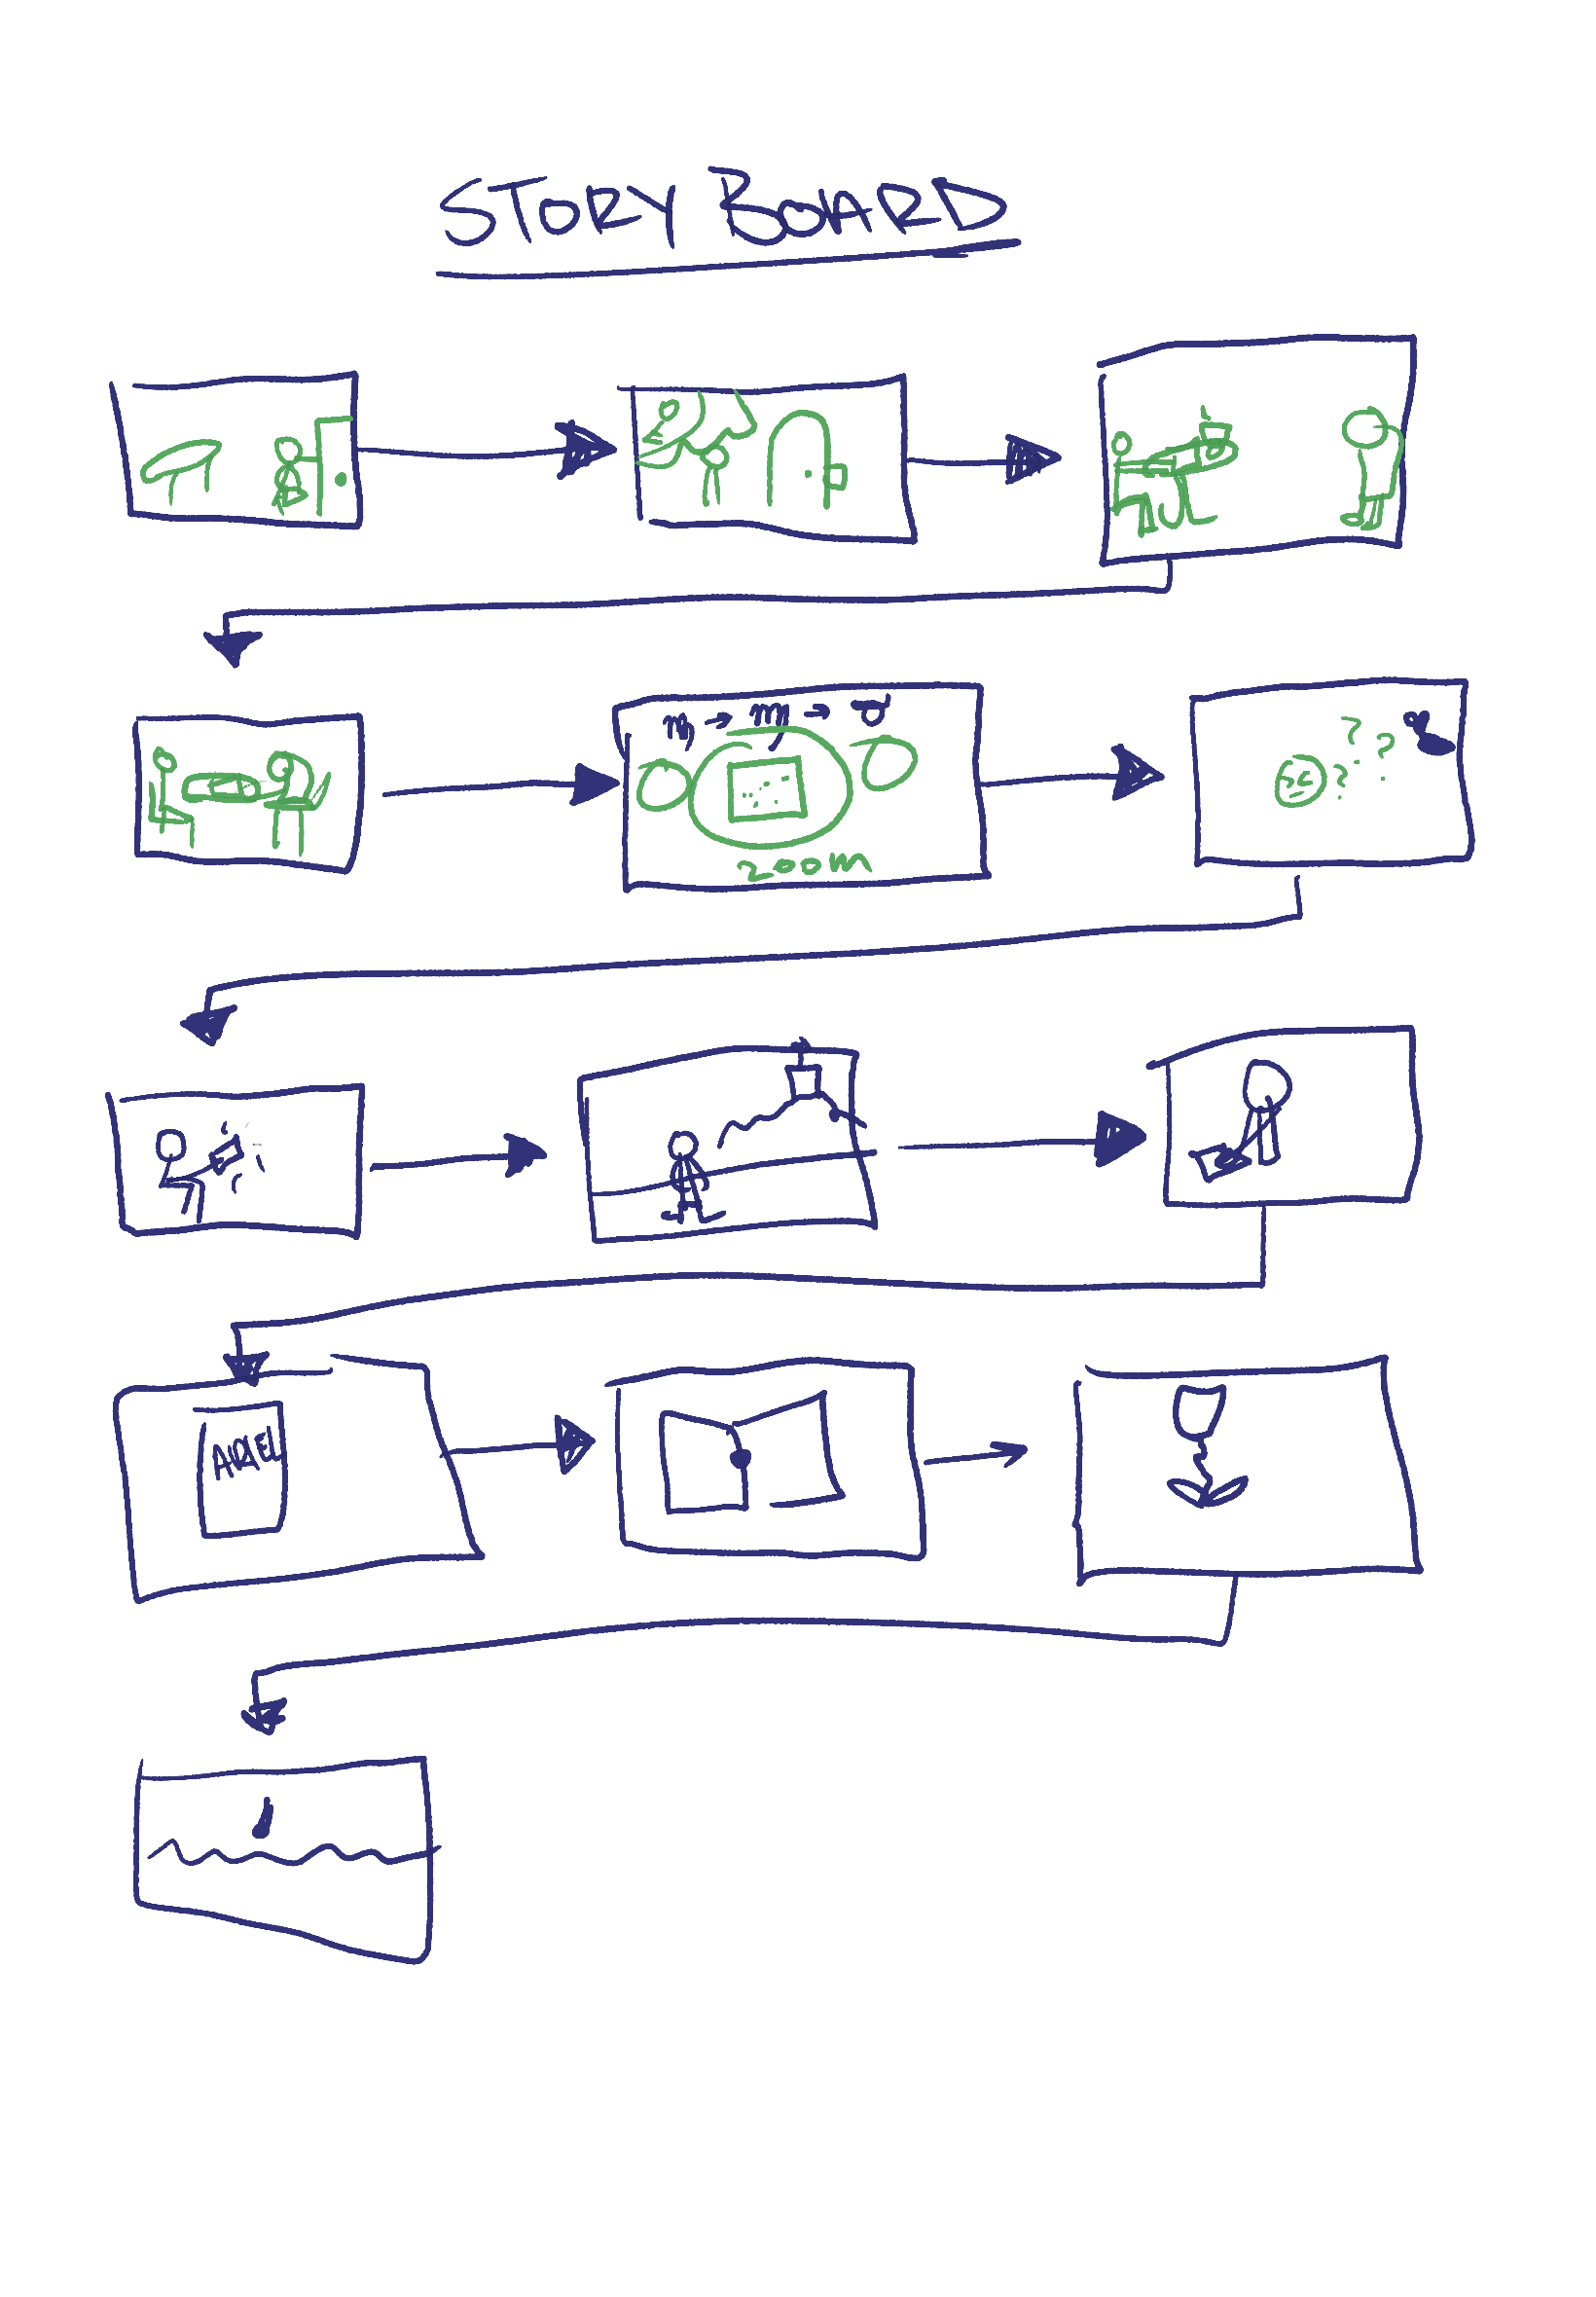 STORY BOARD
? ? ?
zoom
ARIEL